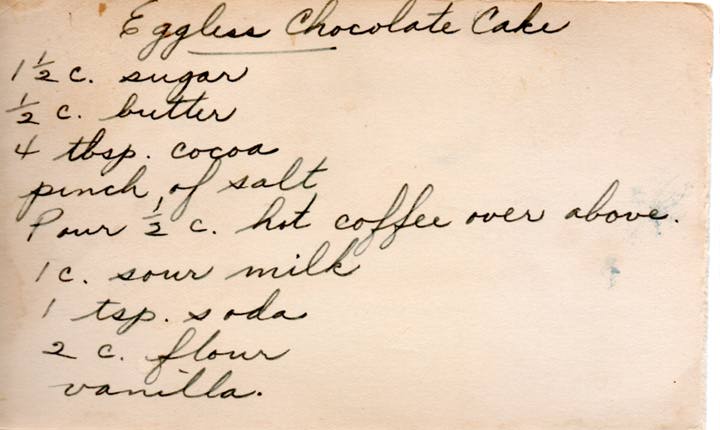 Eggless Chocolate Cake
1 1/2 c. sugar
1/2 c. butter
4 tbsp. cocoa
pinch of salt
Pour 1/2 c. hot coffee over above.
1 c. sour milk
1 tsp. soda
2 c. flour
vanilla.